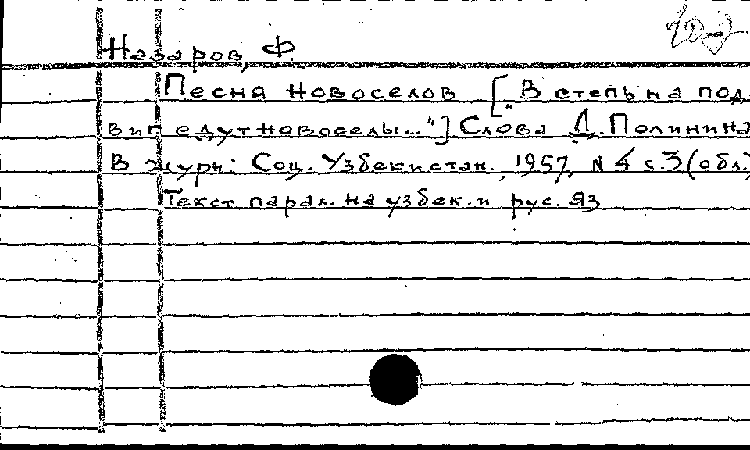 Назаров, Ф.
Песня новоселов ["В степь на под-
виг едут новоселы..."] Слова Д. Полинина
В журн: Соц. Узбекистан, 1957, N 4 с.3 (обл.)
Текст парал. на узбек. и рус. яз